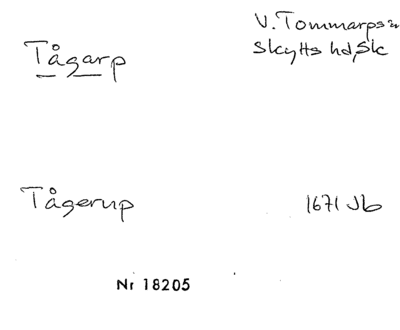 V. Tommarps sn
Skytts hd, Sk
Tågarp
Tågerup
1671 Jb
Nr 18205